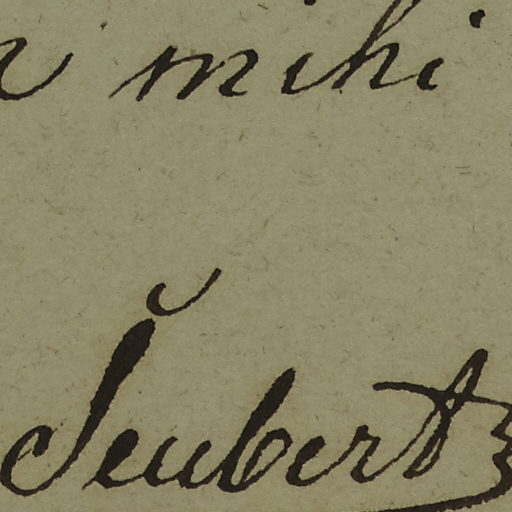 mihi
Seubert